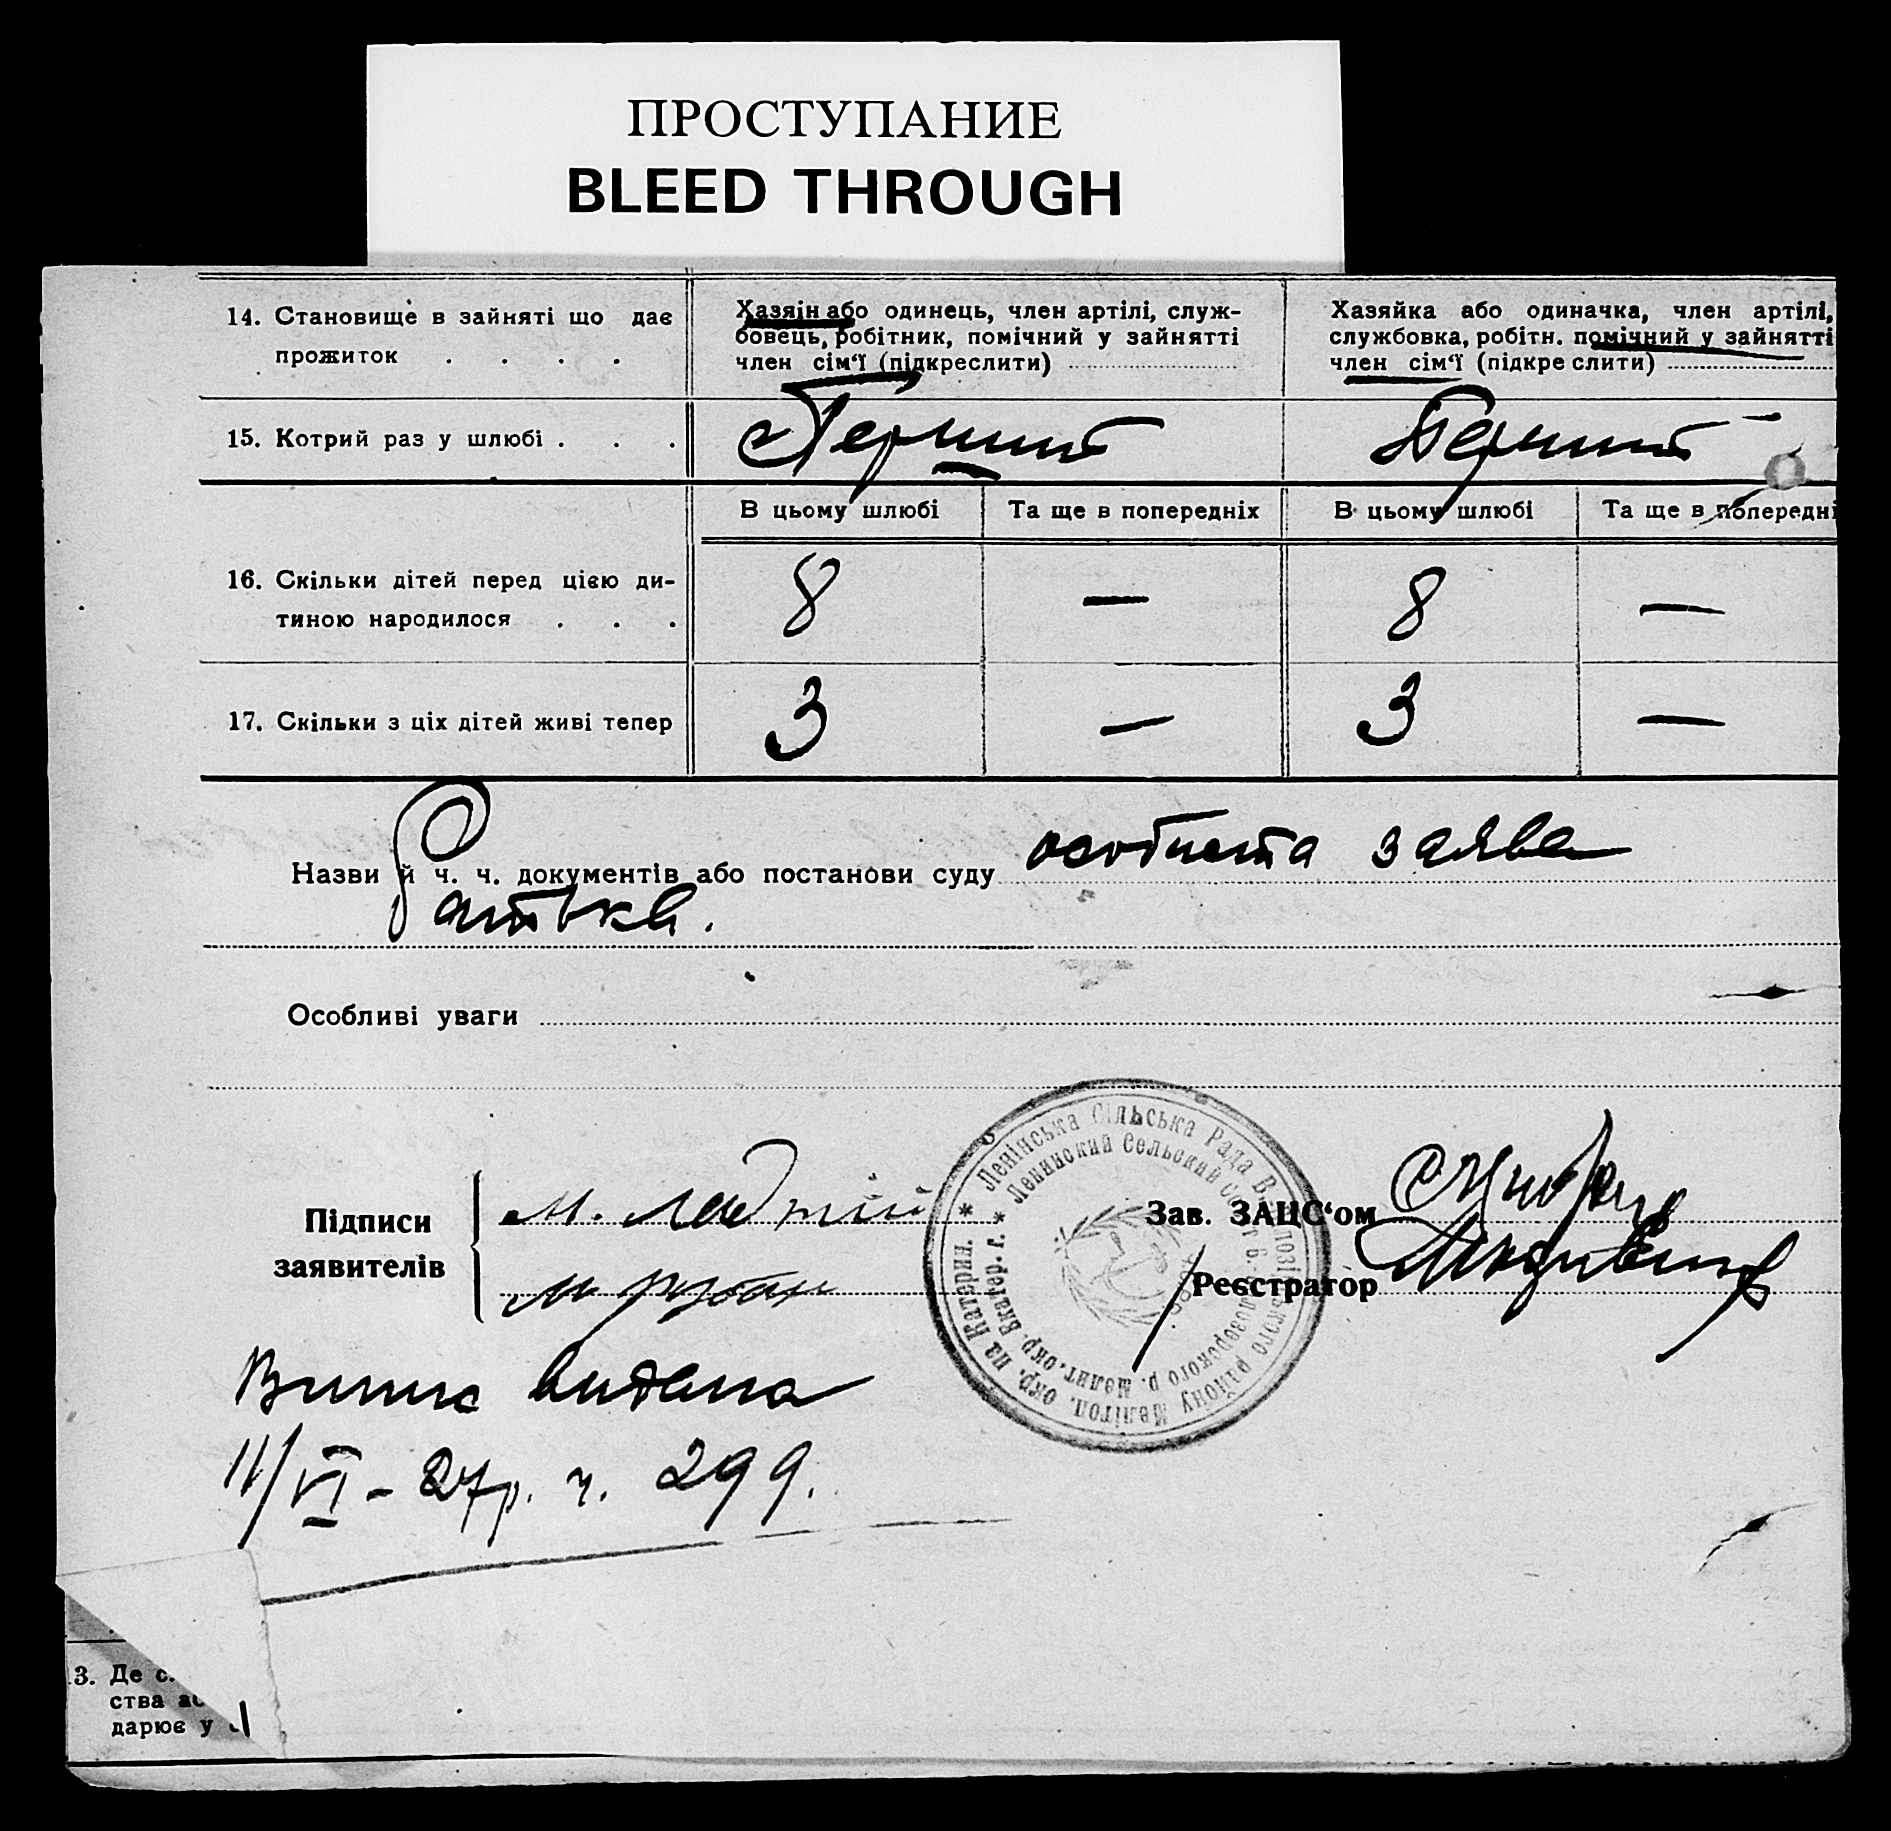 ПРОСТУПАНИЕ
BLEED THROUGH
14. Становище в зайняті що дає
прожиток . . . .
Хазяїн або одинець, член артілі, служ-
бовець, робітник, помічний у зайнятті
член сім'ї (підкреслити)
Хазяйка або одиначка, член артілі,
службовка, робітн. помічний у зайнятті
член сім'ї (підкре слити)
15. Котрий раз у шлюбі . . .
Перший
Перший
В цьому шлюбі
Та ще в попередніх
В цьому шлюбі
Та ще в попередні
16. Скільки дітей перед цією ди-
тиною народилося . . .
8 — 8 —
17. Скільки з ціх дітей живі тепер
3 — 3 —
Назви й ч. ч. документів або постанови суду особиста заява
Батька.
Особливі уваги
Підписи
заявителів
М.
М.
Ленінська Сільська Рада В. району Мелітоп. окр. на Катерин.
Ленинский Сельский р. Мелит. окр. Екатер. г.
Зав. ЗАЦС'ом
Реєстратор
Випис видана
11/VI - 27р. ч. 299.
3. Де с.
ства аб
дарює у